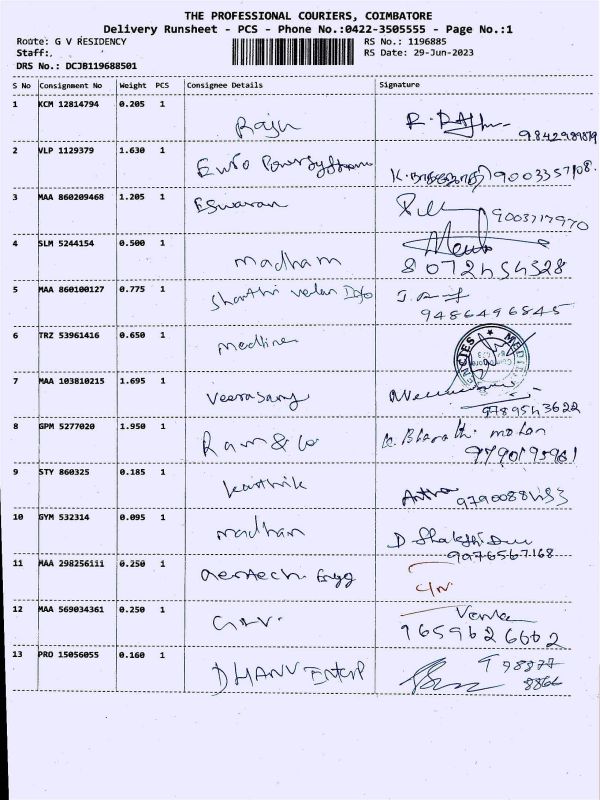 THE PROFESSIONAL COURIERS, COIMBATORE
Delivery Runsheet - PCS - Phone No.:0422-3505555 - Page No.:1
Route: G V RESIDENCY RS No.: 1196885
Staff:. RS Date: 29-Jun-2023
DRS No.: DCJB119688501
S No Consignment No Weight PCS Consignee Details Signature
1 KCM 12814794 0.205 1 Raju R. Raju
2 VLP 1129379 1.630 1 Euro 9003357108.
3 MAA 860209468 1.205 1 Eswaran 9003717970
4 SLM 5244154 0.500 1 madham
8072454328
5 MAA 860100127 0.775 1 Shanthi velan Info
9486496845
6 TRZ 53961416 0.650 1 medliner
7 MAA 103810215 1.695 1 Veerasamy
9789543622
8 GPM 5277020 1.950 1 Ram & Co K. Bharathi mohan
9 STY 860325 0.185 1 Karthik
10 GYM 532314 0.095 1 madhan
9976567168
11 MAA 298256111 0.250 1 aerotech. Engg
12 MAA 569034361 0.250 1
9659626662
13 PRO 15056055 0.160 1 DHANV Enterp